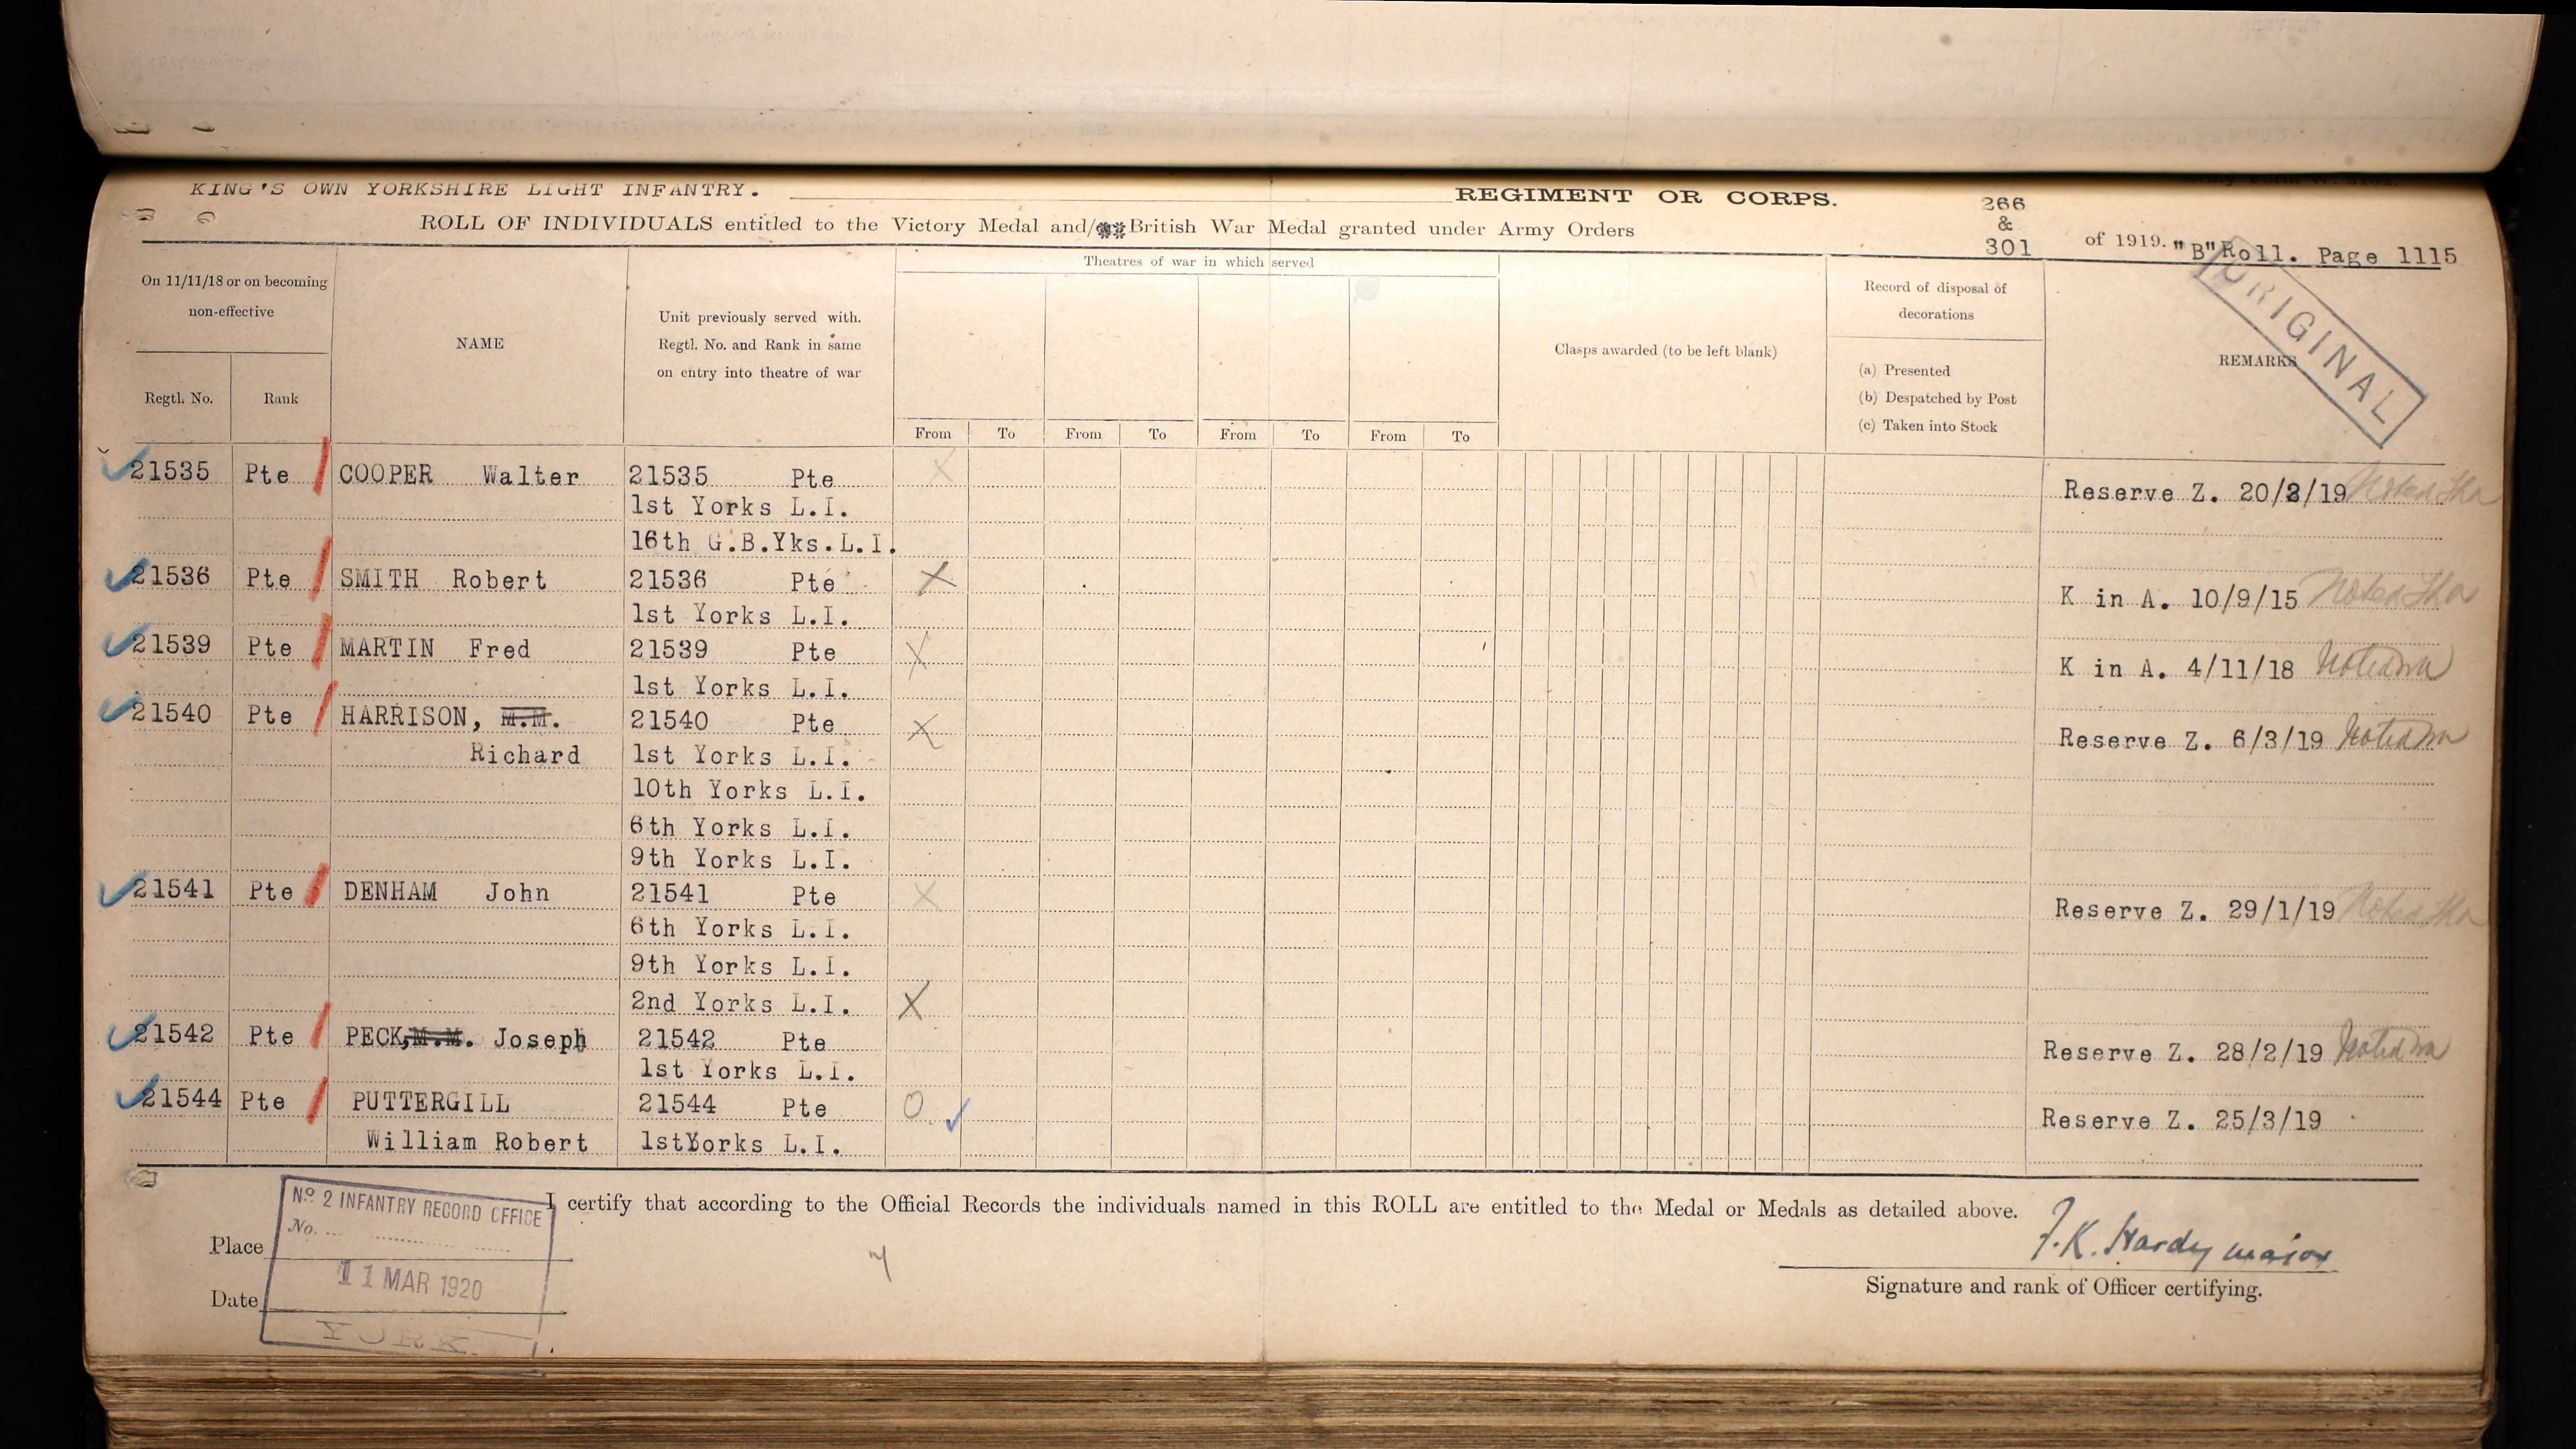 KING'S OWN YORKSHIRE LIGHT INFANTRY. REGIMENT OR CORPS.
ROLL OF INDIVIDUALS entitled to the Victory Medal and/ British War Medal granted under Army Orders 266 & 301 of 1919. "B" Roll. Page 1115
ORIGINAL
On 11/11/18 or on becoming non-effective
Regtl. No.
Rank
NAME
Unit previously served with.
Regtl. No. and Rank in same
on entry into theatre of war
Theatres of war in which served
From To From To From To From To
Clasps awarded (to be left blank)
Record of disposal of
decorations
(a) Presented
(b) Despatched by Post
(c) Taken into Stock
REMARKS
21535 Pte COOPER Walter 21535 Pte X Reserve Z. 20/2/19 Noted
1st Yorks L.I.
16th G.B.Yks.L.I.
21536 Pte SMITH Robert 21536 Pte X K in A. 10/9/15 Noted
1st Yorks L.I.
21539 Pte MARTIN Fred 21539 Pte X K in A. 4/11/18 Noted
1st Yorks L.I.
21540 Pte HARRISON, M.M. 21540 Pte X Reserve Z. 6/3/19 Noted
Richard 1st Yorks L.I.
10th Yorks L.I.
6th Yorks L.I.
9th Yorks L.I.
21541 Pte DENHAM John 21541 Pte X Reserve Z. 29/1/19 Noted
6th Yorks L.I.
9th Yorks L.I.
2nd Yorks L.I. X
21542 Pte PECK, M.M. Joseph 21542 Pte Reserve Z. 28/2/19 Noted
1st Yorks L.I.
21544 Pte PUTTERGILL 21544 Pte O Reserve Z. 25/3/19
William Robert 1stYorks L.I.
I certify that according to the Official Records the individuals named in this ROLL are entitled to the Medal or Medals as detailed above.
No 2 INFANTRY RECORD OFFICE
No.
Place
11 MAR 1920
Date
YORK.
F.K. Hardy major
Signature and rank of Officer certifying.